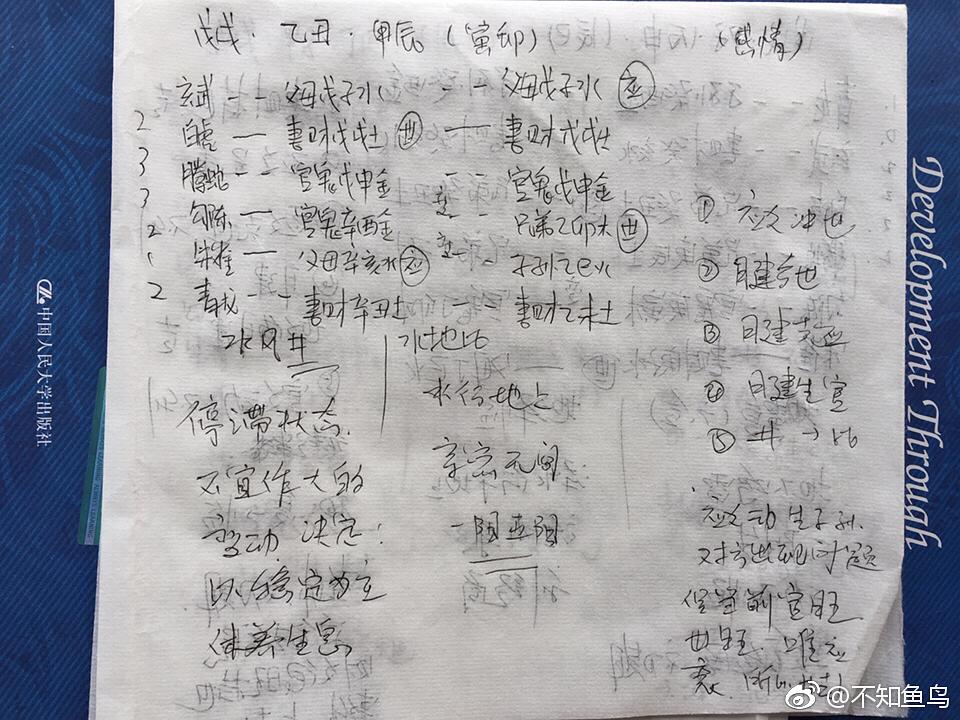 戊戌·乙丑·甲辰(寅卯) (感情)
玄武 -- 父母戊子水 -- 父母戊子水 应
2 白虎 — 妻财戊戌土 世 — 妻财戊戌土
3 腾蛇 -- 官鬼戊申金 -- 官鬼戊申金
3 勾陈 — 官鬼辛酉金 -- 兄弟乙卯木 世
2 朱雀 — 父母辛亥水 应 -- 子孙乙巳火
1
2 青龙 -- 妻财辛丑土 -- 妻财乙未土
水风井 水地比
停滞状态.
不宜作大的
变动 决定:
以稳定为主
休养生息
水行地上
亲密无间
① 应爻冲世
② 日建合世
③ 日建克应
④ 日建生官
⑤ 井→比
应爻动生子孙.
对方出现问题
但当前官旺
世旺. 唯应
衰.
Development Through
中国人民大学出版社
@不知鱼鸟